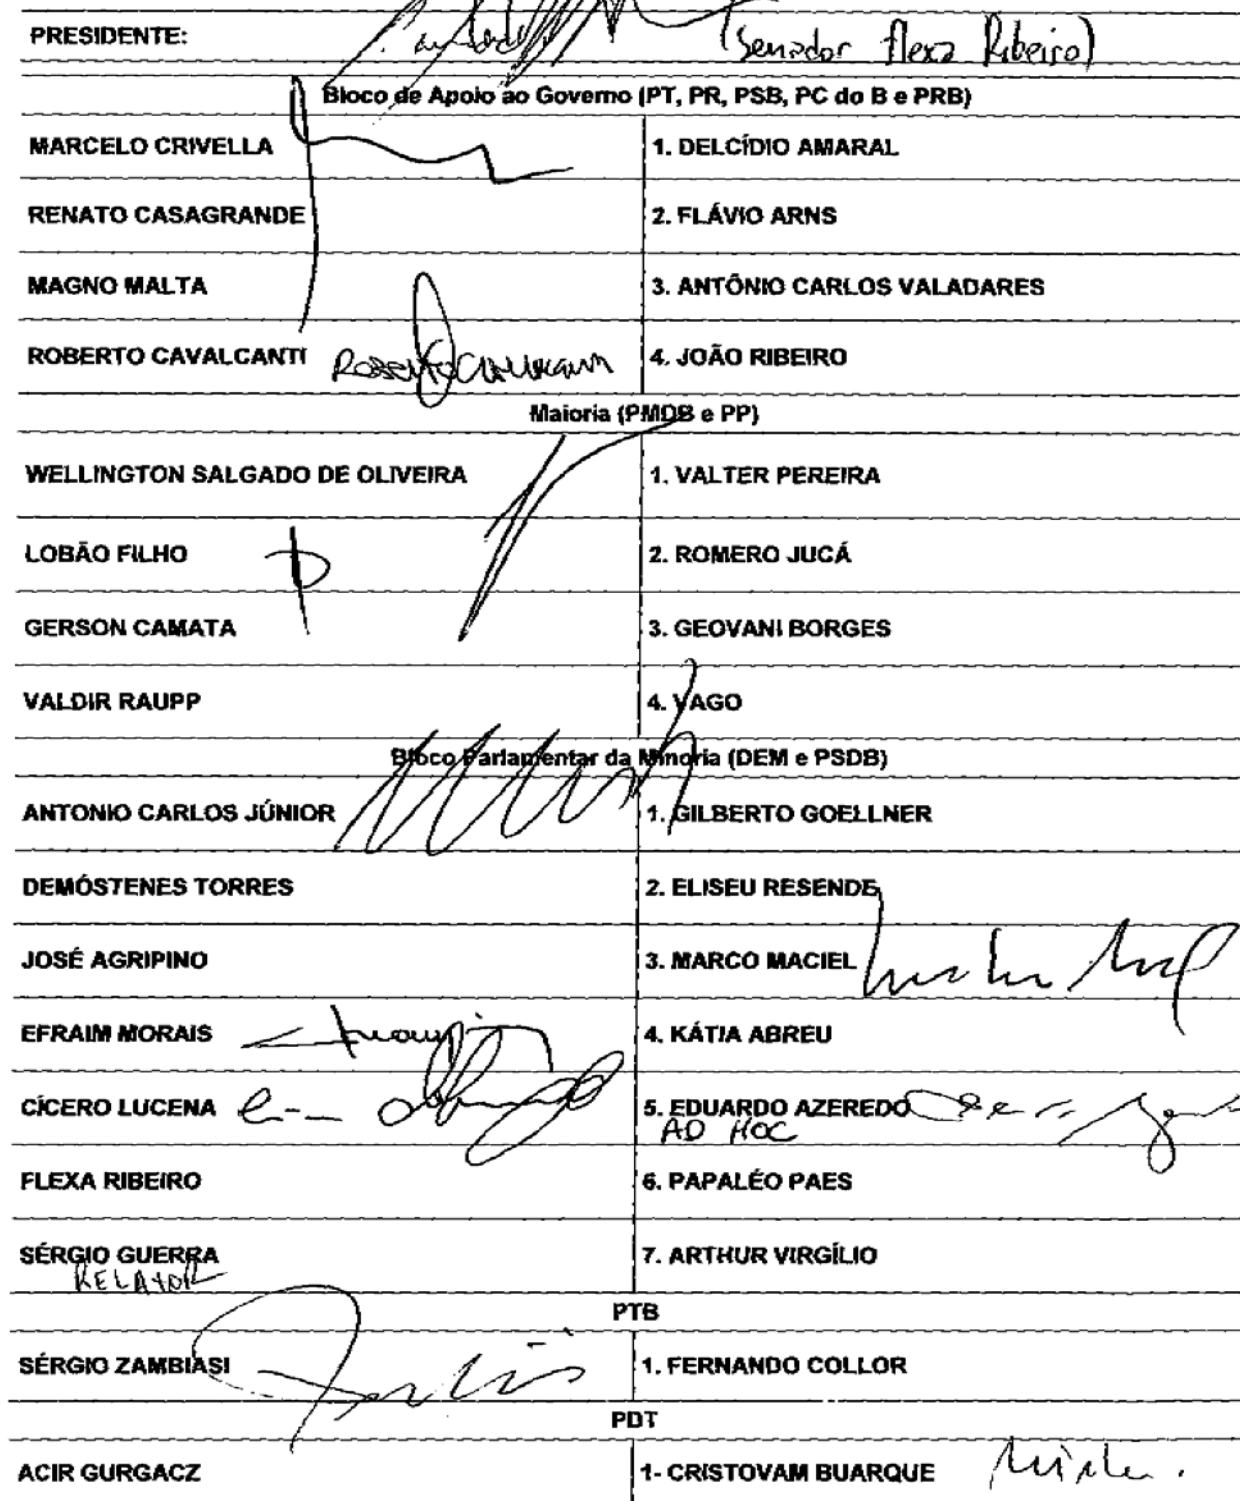 PRESIDENTE: (Senador Flexa Ribeiro)
Bloco de Apoio ao Governo (PT, PR, PSB, PC do B e PRB)
MARCELO CRIVELLA 1. DELCÍDIO AMARAL
RENATO CASAGRANDE 2. FLÁVIO ARNS
MAGNO MALTA 3. ANTÔNIO CARLOS VALADARES
ROBERTO CAVALCANTI 4. JOÃO RIBEIRO
Maioria (PMDB e PP)
WELLINGTON SALGADO DE OLIVEIRA 1. VALTER PEREIRA
LOBÃO FILHO 2. ROMERO JUCÁ
GERSON CAMATA 3. GEOVANI BORGES
VALDIR RAUPP 4. VAGO
Bloco Parlamentar da Minoria (DEM e PSDB)
ANTONIO CARLOS JÚNIOR 1. GILBERTO GOELLNER
DEMÓSTENES TORRES 2. ELISEU RESENDE
JOSÉ AGRIPINO 3. MARCO MACIEL
EFRAIM MORAIS 4. KÁTIA ABREU
CÍCERO LUCENA 5. EDUARDO AZEREDO
AD HOC
FLEXA RIBEIRO 6. PAPALÉO PAES
SÉRGIO GUERRA 7. ARTHUR VIRGÍLIO
RELATOR
PTB
SÉRGIO ZAMBIASI 1. FERNANDO COLLOR
PDT
ACIR GURGACZ 1- CRISTOVAM BUARQUE